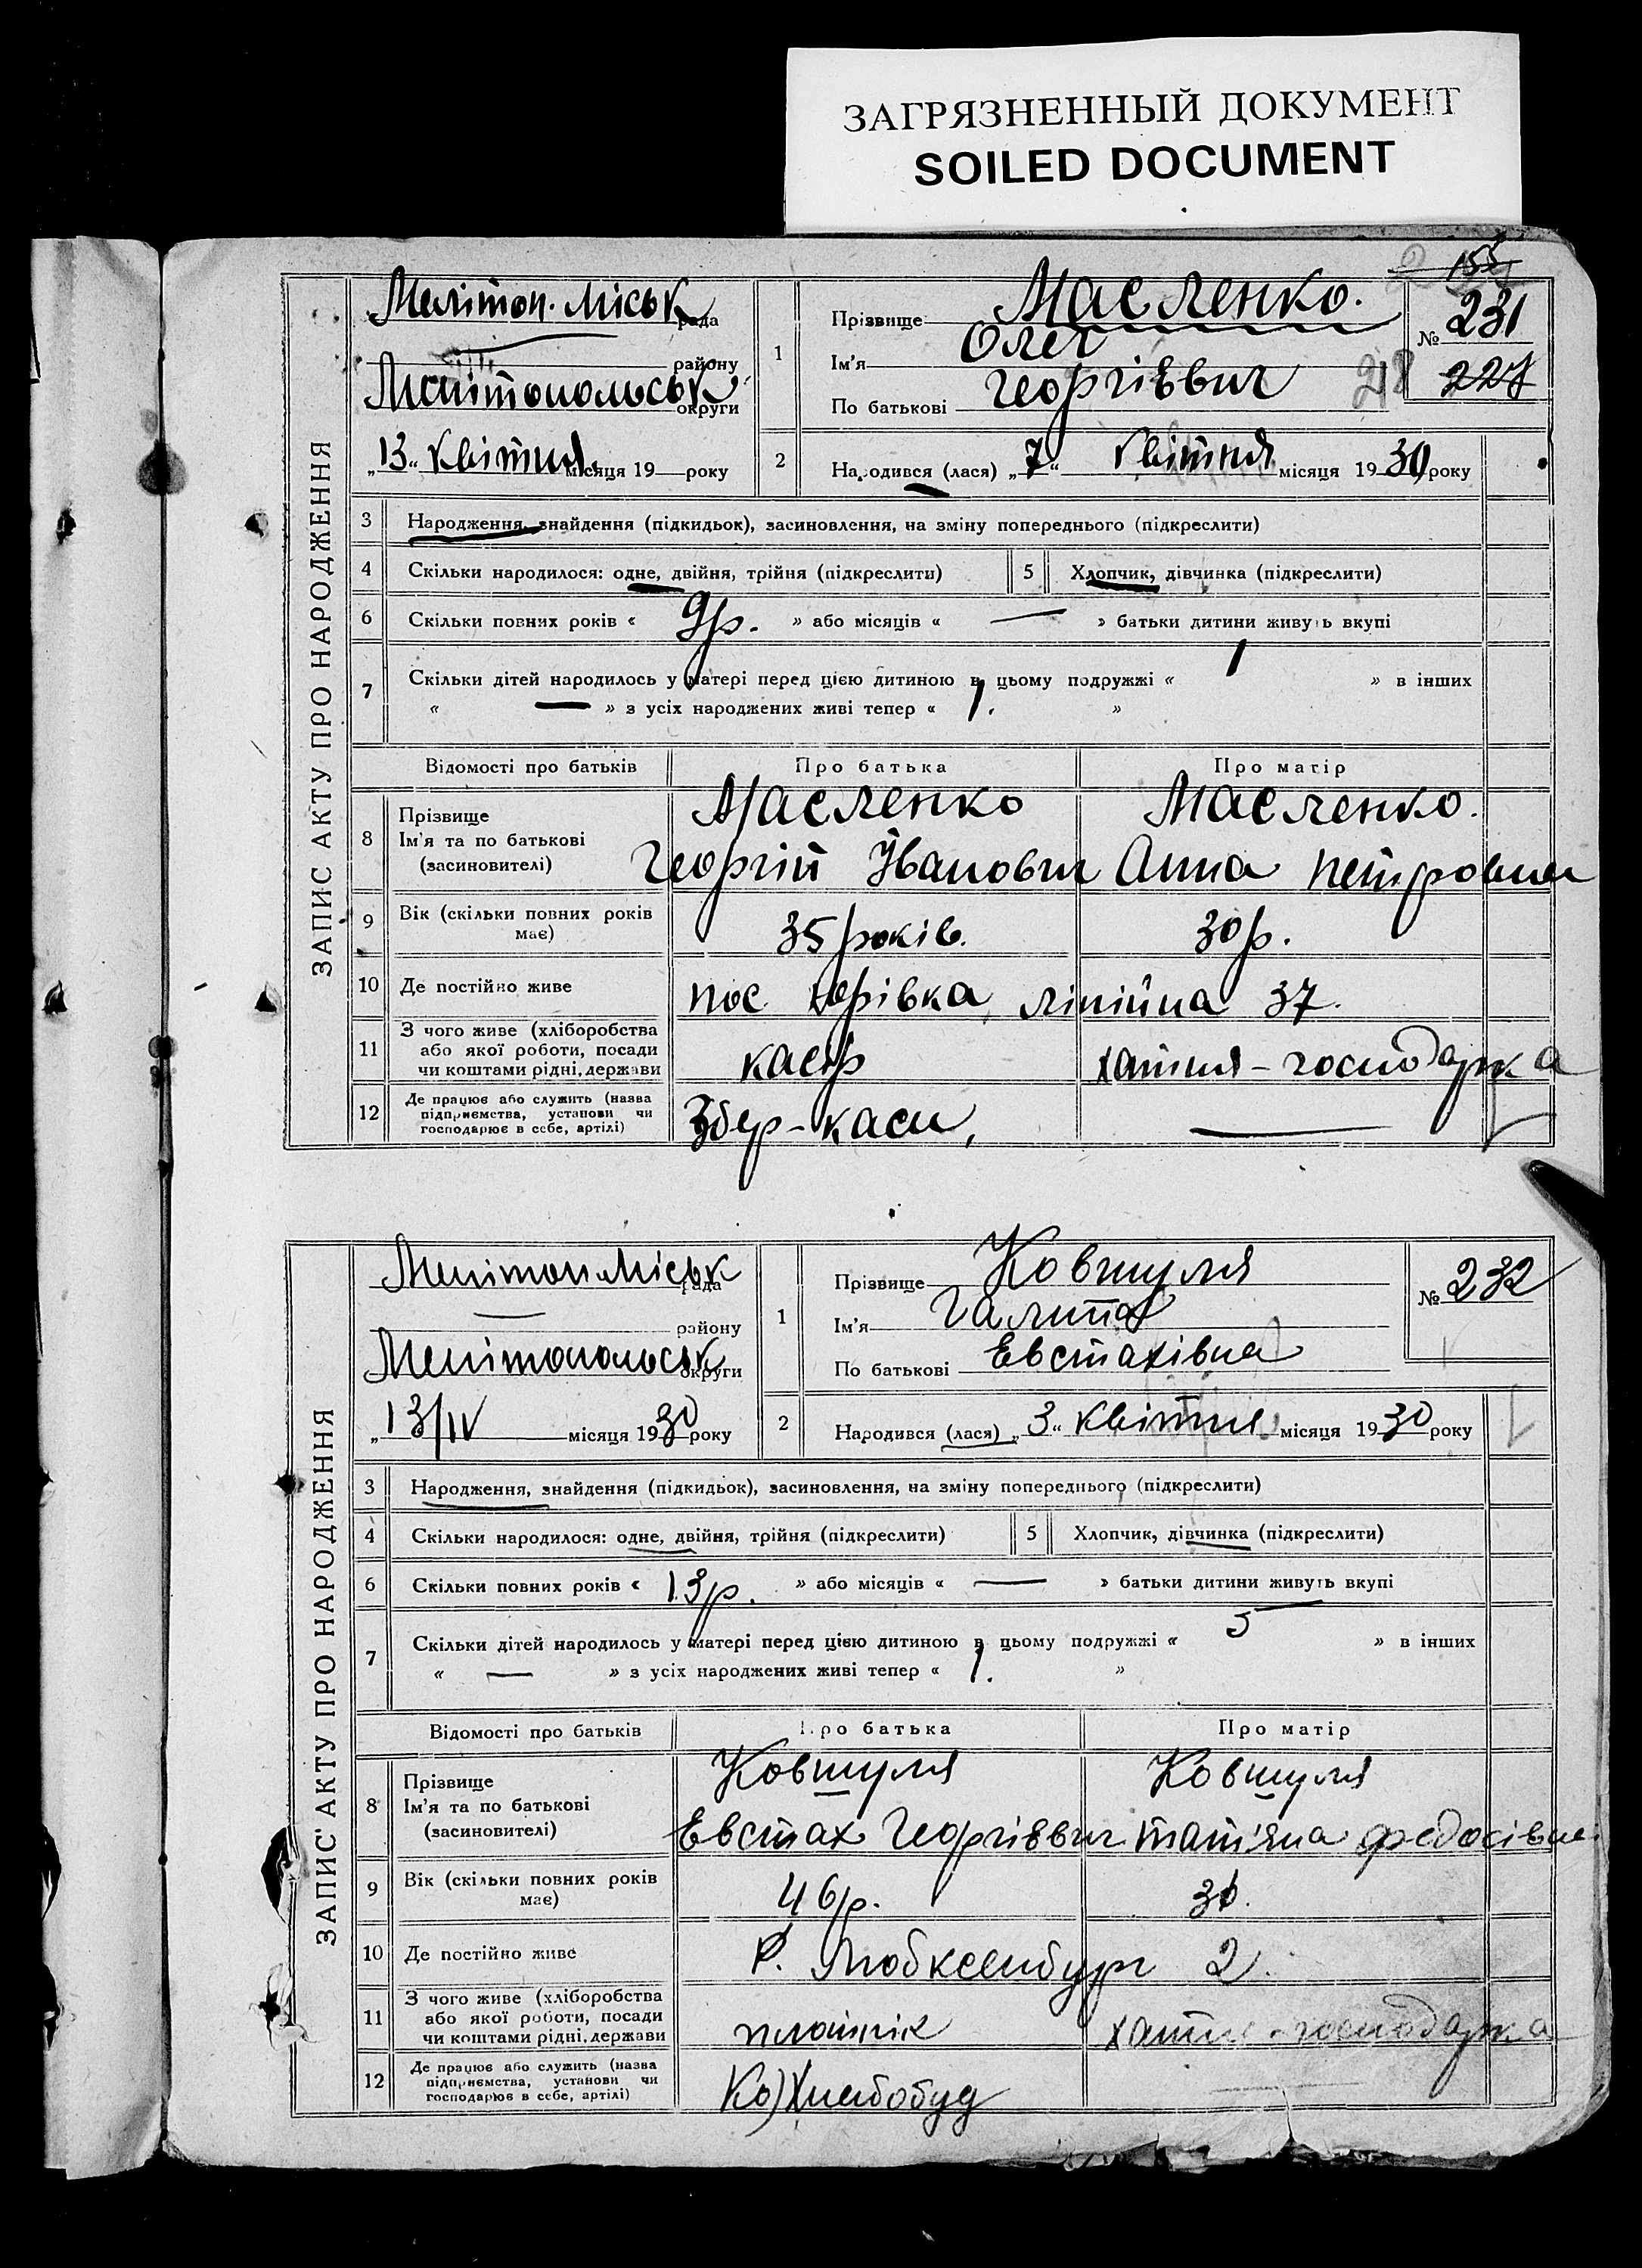 ЗАГРЯЗНЕННЫЙ ДОКУМЕНТ
SOILED DOCUMENT
155
ЗАПИС АКТУ ПРО НАРОДЖЕННЯ
Мелітоп. міськ рада
району
Мелітопольськ округи
„13“ квітня місяця 19 року
1
Прізвище Масленко.
Ім'я Олег
По батькові Георгієвич
№ 231
227
218
2
Народився (лася) „7“ квітня місяця 1930 року
3 Народження, знайдення (підкидьок), засиновлення, на зміну попереднього (підкреслити)
4 Скільки народилося: одне, двійня, трійня (підкреслити) 5 Хлопчик, дівчинка (підкреслити)
6 Скільки повних років « 9р. » або місяців « — » батьки дитини живуть вкупі
7 Скільки дітей народилось у матері перед цією дитиною в цьому подружжі « 1 » в інших
« — » з усіх народжених живі тепер « 1. »
Відомості про батьків Про батька Про матір
8 Прізвище Масленко Масленко.
Ім'я та по батькові
(засиновителі) Георгій Іванович Анна Петровна
9 Вік (скільки повних років має) 35 років. 30 р.
10 Де постійно живе пос. лінійна 37.
11 З чого живе (хліборобства
або якої роботи, посади
чи коштами рідні, держави касір хатня - господарка
12 Де працює або служить (назва
підприємства, установи чи
господарює в себе, артілі) Збер-каси, —
ЗАПИС АКТУ ПРО НАРОДЖЕННЯ
Мелітоп міськ рада
району
Мелітопольськ округи
„13/IV місяця 1930 року
1
Прізвище Ковшуля
Ім'я Галина
По батькові Евстахівна
№ 232
2
Народився (лася) „3“ квітня місяця 1930 року
3 Народження, знайдення (підкидьок), засиновлення, на зміну попереднього (підкреслити)
4 Скільки народилося: одне, двійня, трійня (підкреслити) 5 Хлопчик, дівчинка (підкреслити)
6 Скільки повних років « 13р. » або місяців « — » батьки дитини живуть вкупі
7 Скільки дітей народилось у матері перед цією дитиною в цьому подружжі « 5 » в інших
« — » з усіх народжених живі тепер « 1. »
Відомості про батьків Про батька Про матір
8 Прізвище Ковшуля Ковшуля
Ім'я та по батькові
(засиновителі) Евстах Георгієвич Татіяна Федосівна
9 Вік (скільки повних років має) 46р.
10 Де постійно живе Р. 2.
11 З чого живе (хліборобства
або якої роботи, посади
чи коштами рідні, держави плотнік хатня - господарка
12 Де працює або служить (назва
підприємства, установи чи
господарює в себе, артілі)